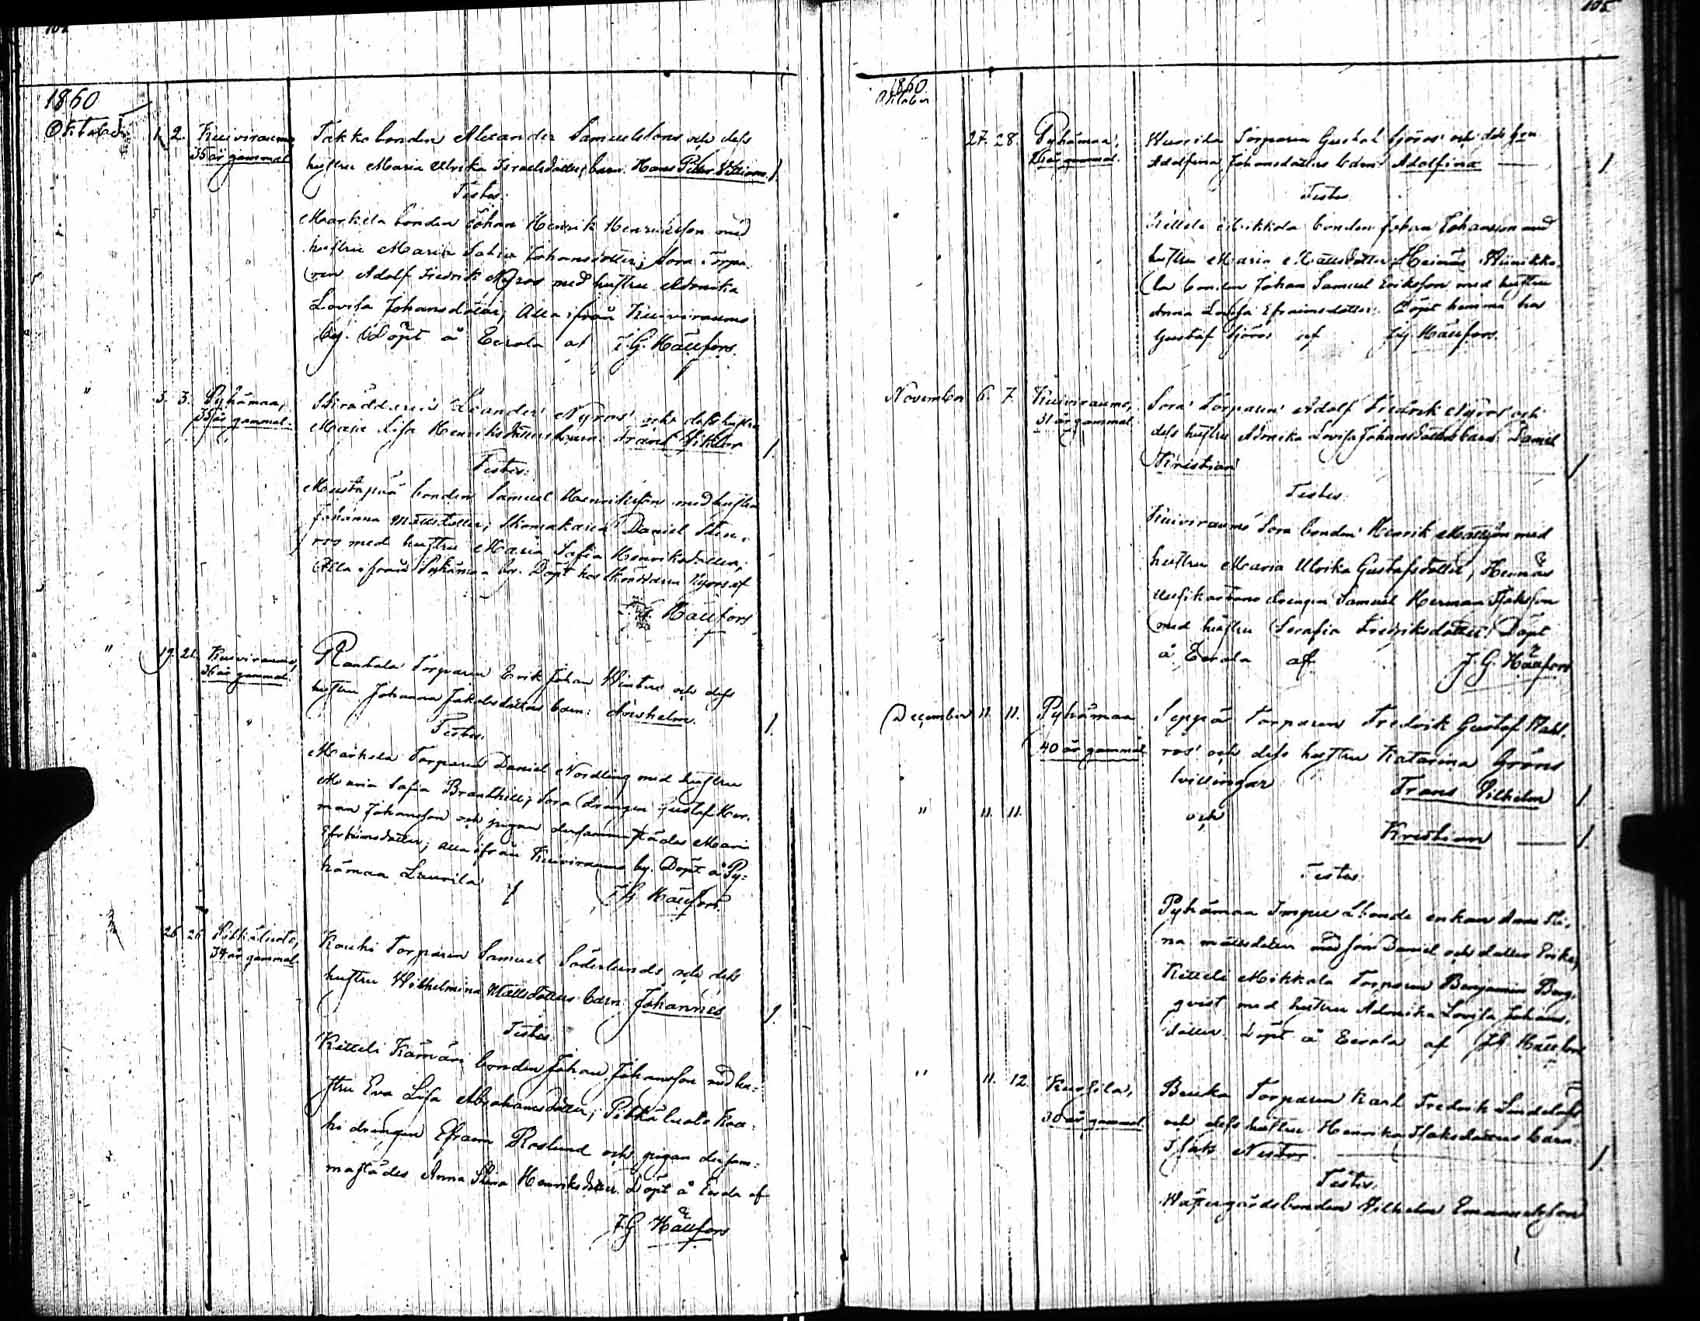 1860
Oktober
1. 2. Kuivirauma, Takko bonden Alexander Samuelssons och dess
35 år gammal. hustru Maria Ulrika Israelsdotters barn: Hans Petter Vilhem. 1.
Testes:
Markela bonden Johan Henrik Henriksson med
hustru Maria Sofia Johansdotter; Sora Torpa-
ren Adolf Fredrik Nyros med hustru Adonika
Lovisa Johansdotter; Alla från Kuivirauma
by. Döpt å Eerola af J. G. Hällfors.
" 3. 3. Pyhämaa, Skräddaren Leander Nyros och dess hustru
35 år gammal. Maja Lisa Henriksdotters barn: Frans Viktor 1.
Testes:
Mustapää bonden Samuel Henriksson med hustru
Johanna Mattsdotter; Skomakaren Daniel Sten-
ros med hustru Maria Sofia Henriksdotter;
Alla från Pyhämaa by. Döpt hos Skräddaren Nyros af
J. G. Hällfors
" 19. 21. Kuivirauma, Rantala Torparen Erik Johan Winters och dess
36 år gammal. hustru Johanna Jakobsdotters barn: 1.
Testes:
Markela Torparen Daniel Nordling med hustru
Maria Sofia Sora drängen Gustaf Her-
man Johansson och pigan dersammastädes Maria
Efraimsdotter; alla från Kuivirauma by. Döpt å Py-
hämaa Laurila af J. G. Hällfors.
26. 26. Pitkäluoto, Kauhi Torparen Samuel Söderlunds och dess
34 år gammal. hustru Wilhelmina Mattsdotters barn: Johannes 1.
Testes:
Ketteli Kämäri bonden Johan Johansson med hu-
stru Eva Lisa Abrahamsdotter; Pitkäluoto Kau-
hi drängen Efraim Roslund och pigan dersam-
mastädes Anna Stina Henriksdotter. Döpt å Eerola af
J G Hällfors
105
1860
Oktober
27. 28. Pyhämaa, Torparen Gustaf Sjöros' och dess hu
gammal. Adolfina Johansdotters barn: Adolfina 1
Testes
Ketteli Mikkola bonden Johan Johansson med
hustru Maria Mattsdotter
bonden Johan Samuel Eriksson med hustru
Anna Lovisa Efraimsdotter. Döpt hemma hos
Gustaf Sjöros af J G Hällfors.
November 6. 7. Kuivirauma, Sora Torparen Adolf Fredrik Nyros och
31 år gammal. dess hustru Adonika Lovisa Johansdotters barn: Daniel
Kristian 1
Testes.
Kuivirauma Sora bonden Henrik Mattsson med
hustru Maria Ulrika Gustafsdotter;
drängen Samuel Herman Isaksson
med hustru Serafia Fredriksdotter. Döpt
å Eerola af J. G. Hällfors
December 11. 11. Pyhämaa Seppä Torparen Fredrik Gustaf Wahl-
40 år gammal ros' och dess hustru Katarina Gröns
tvillingar Frans Vilhelm 1
" 11. 11. och Kristian 1.
Testes:
Pyhämaa bonde enkan Anna Sti-
na Mattsdotter med son Daniel och dotter Erika;
Ketteli Mikkola Torparen Benjamin Berg-
qvist med hustru Adonika Lovisa Johans-
dotter. Döpt å Eerola af J G Hällfors
" 11. 12. Kukola, Torparen Karl Fredrik Lindelöfs
30 år gammal och dess hustru Henrika Isaksdotters barn:
Isak Nestor 1.
Testes.
bonden Vilhelm Emanuelsson